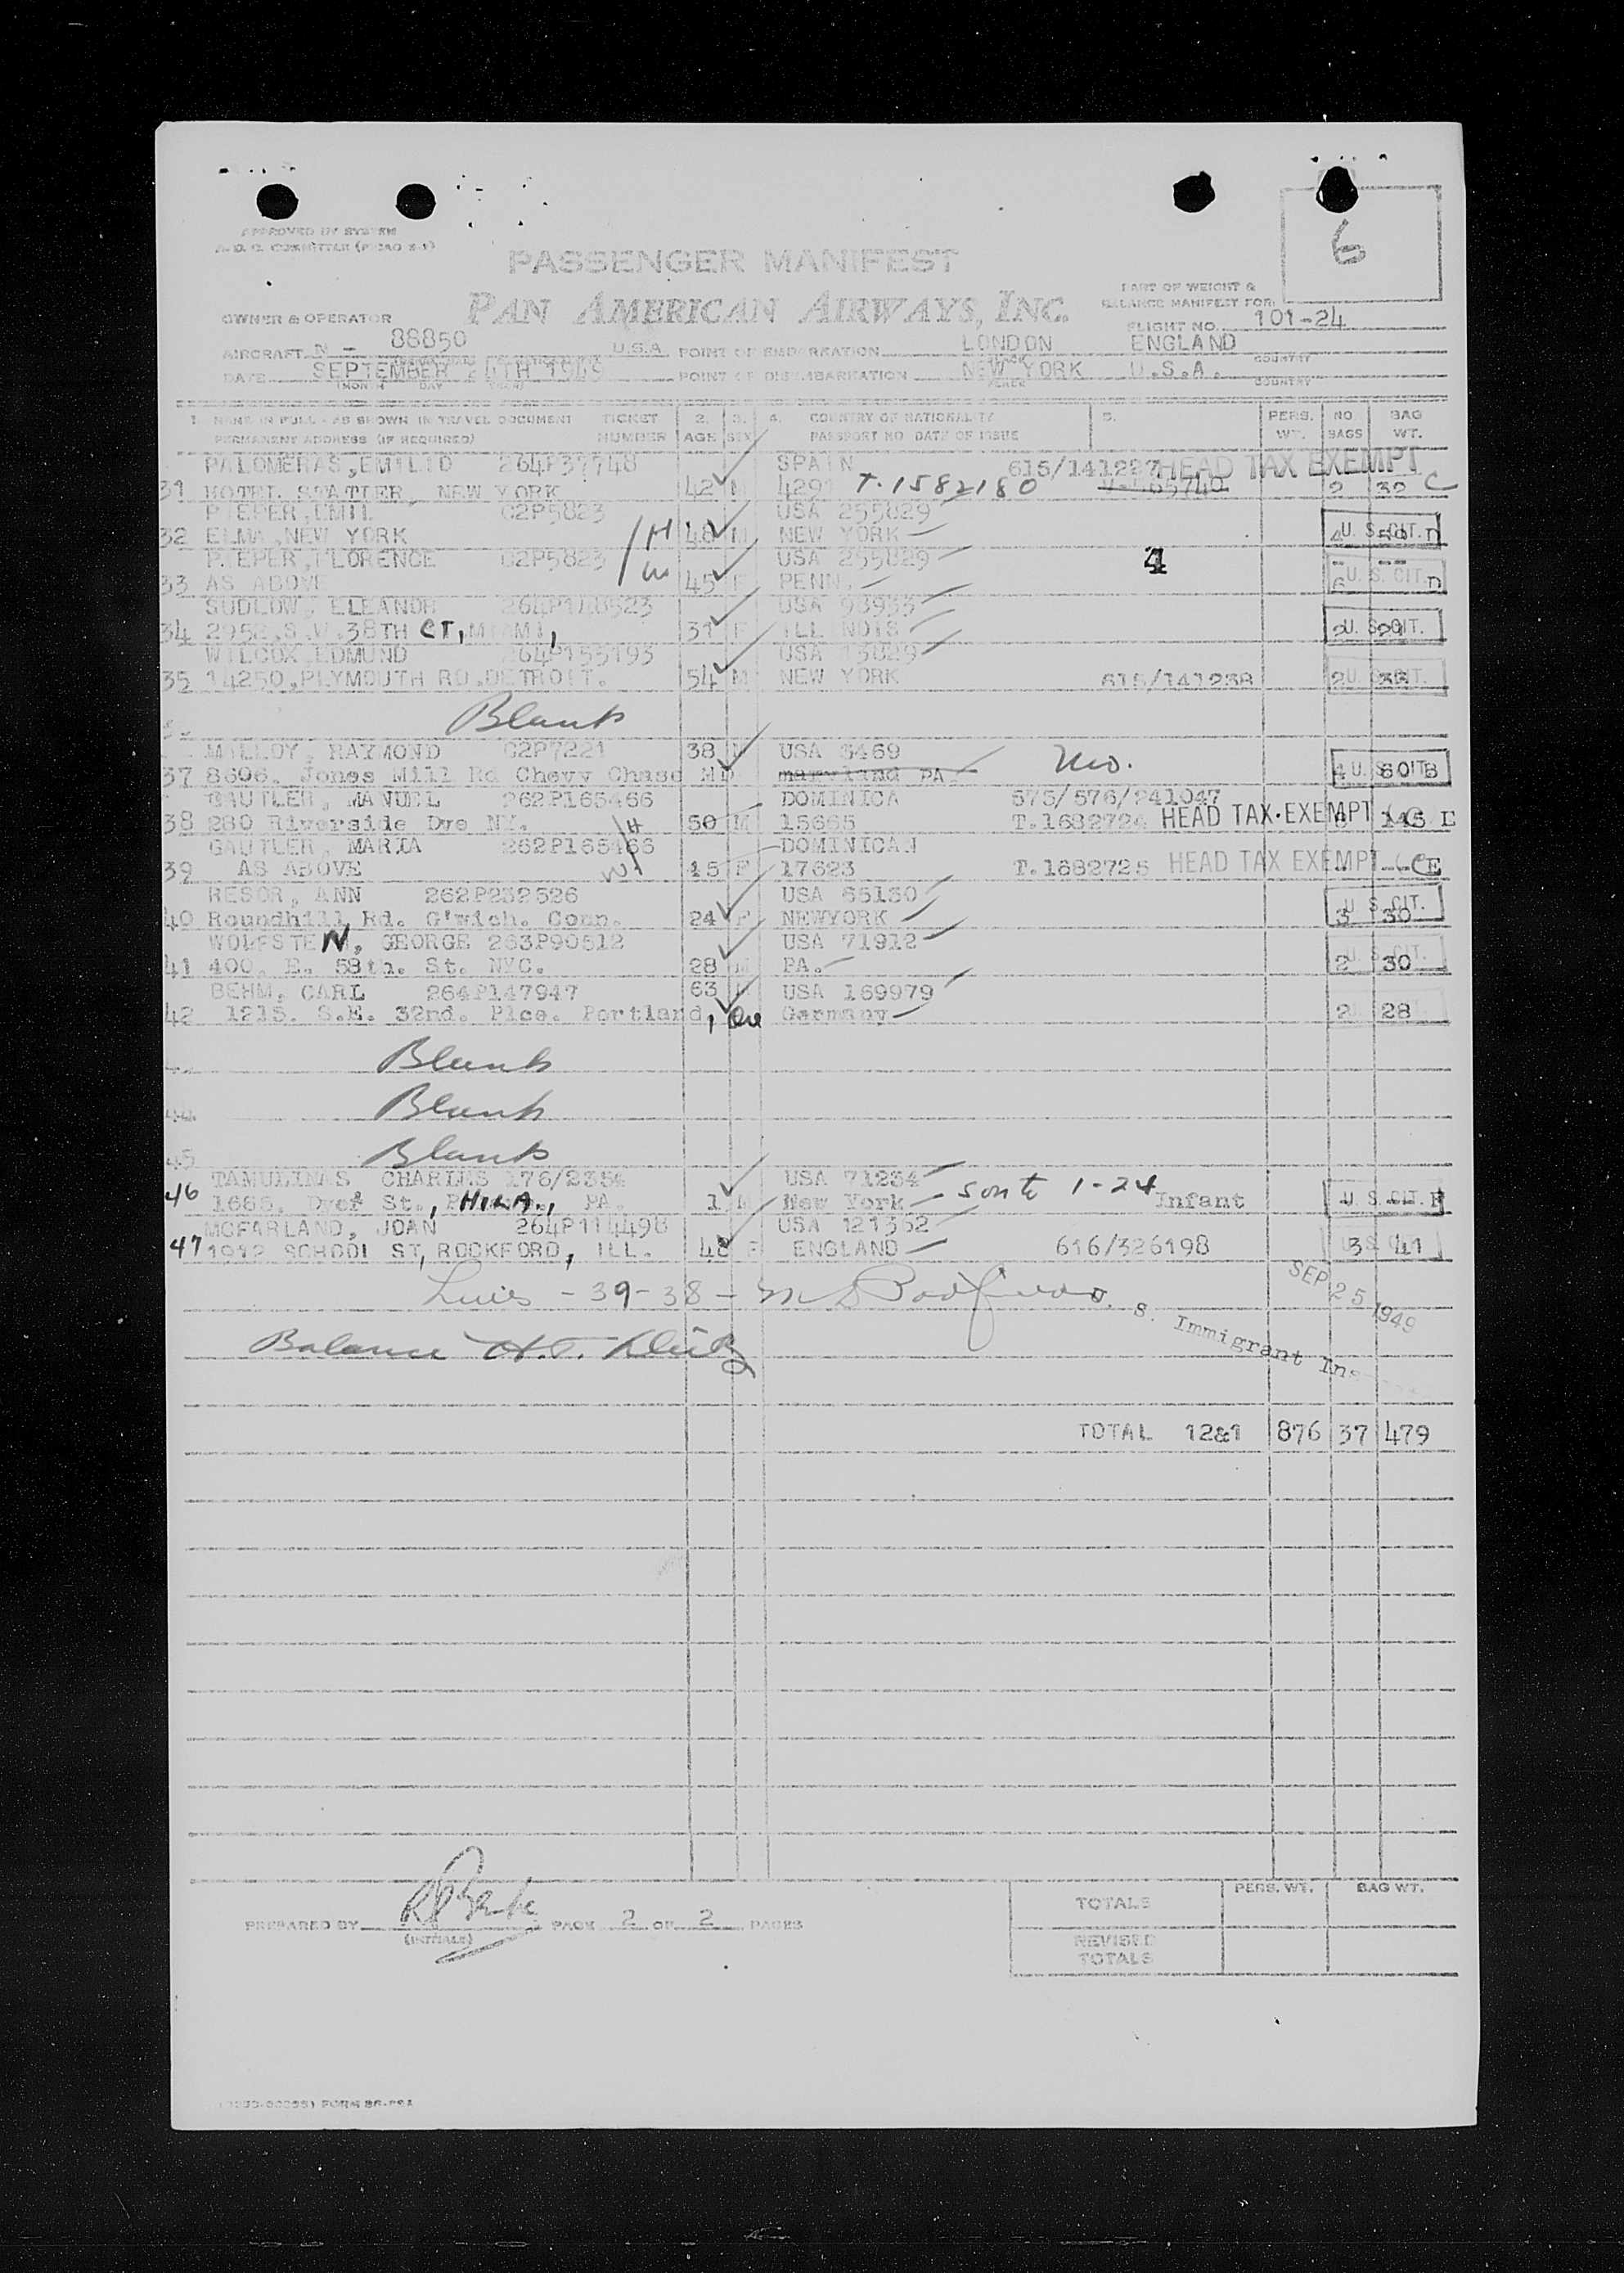 6
APPROVED BY SYSTEM
PASSENGER MANIFEST
PAN AMERICAN AIRWAYS, INC.
PART OF WEIGHT &
BALANCE MANIFEST FOR:
OWNER & OPERATOR
FLIGHT NO. 101-24
AIRCRAFT N - 88850 U.S.A POINT OF EMBARKATION LONDON ENGLAND
DATE SEPTEMBER 24TH 1949 POINT OF DISEMBARKATION NEW YORK U.S.A.
(MONTH DAY COUNTRY
1. NAME IN FULL - AS SHOWN IN TRAVEL DOCUMENT TICKET 2. 3. 4. COUNTRY OF NATIONALITY 5. PERS. NO. BAG
PERMANENT ADDRESS (IF REQUIRED) NUMBER AGE SEX PASSPORT NO DATE OF ISSUE WT. BAGS WT.
PALOMERAS, EMILIO 264P37748 SPAIN 615/141227 HEAD TAX EXEMPT
31 HOTEL STATLER, NEW YORK 42 M 4291 T.1582180 2 32 C
PIEPER, EMIL C2P5823 USA 255829
32 ELMA, NEW YORK H 48 M NEW YORK 4 U. S. CIT. D
PIEPER, FLORENCE C2P5823 USA 255829 4
33 AS ABOVE W 45 F PENN. U. S. CIT. D
SUDLOW, ELEANOR USA 98953
34 2952, S.W. 38TH CT, MIAMI, 31 F ILLINOIS U. S. CIT.
WILCOX, EDMUND 264P153193 USA 13829
35 14250, PLYMOUTH RD. DETROIT. 54 M NEW YORK 615/141238 2 U. S. CIT. 33
Blank
MALLOY, RAYMOND C2P7221 38 M USA 3469
37 8606. Jones Mill Rd Chevy Chase MD maryland PA. Mo. 4 U. S. CIT. 60 B
GAUTLER, MANUEL 262P165466 DOMINICA 575/576/241047
38 280 Riverside Dve NY. H 50 M 15665 T.1682724 HEAD TAX EXEMPT 145 E
GAUTLER, MARIA 262P165466 DOMINICAN
39 AS ABOVE W 45 F 17623 T.1682725 HEAD TAX EXEMPT E
RESOR, ANN 262P232526 USA 65130
40 Roundhill Rd. G'wich. Conn. 24 F NEWYORK U. S. CIT. 3 30
WOLFSTEN, GEORGE 263P90512 USA 71912
41 400. E. 58th. St. NYC. 28 M PA. U. S. CIT. 2 30
BEHM, CARL 264P147947 63 M USA 169979
42 1215. S.E. 32nd. Plce. Portland, Ore Germany 2 28
Blank
44. Blank
45 Blank
TAMULINAS CHARLES 176/2354 USA 71234
46 1685. Dyer St., PHILA., PA. 1 M New York Son to 1-24 Infant U. S. CIT. F
MCFARLAND, JOAN 264P114498 USA 121352
47 1912 SCHOOL ST, ROCKFORD, ILL. 48 F ENGLAND 616/326198 3 41
Lines - 39-38 -
SEP 25 1949
U. S. Immigrant Ins
Balance H.T.
TOTAL 12&1 876 37 479
PREPARED BY PAGE 2 OF 2 PAGES
(INITIALS)
PERS. WT. BAG WT.
TOTALS
REVISED
TOTALS